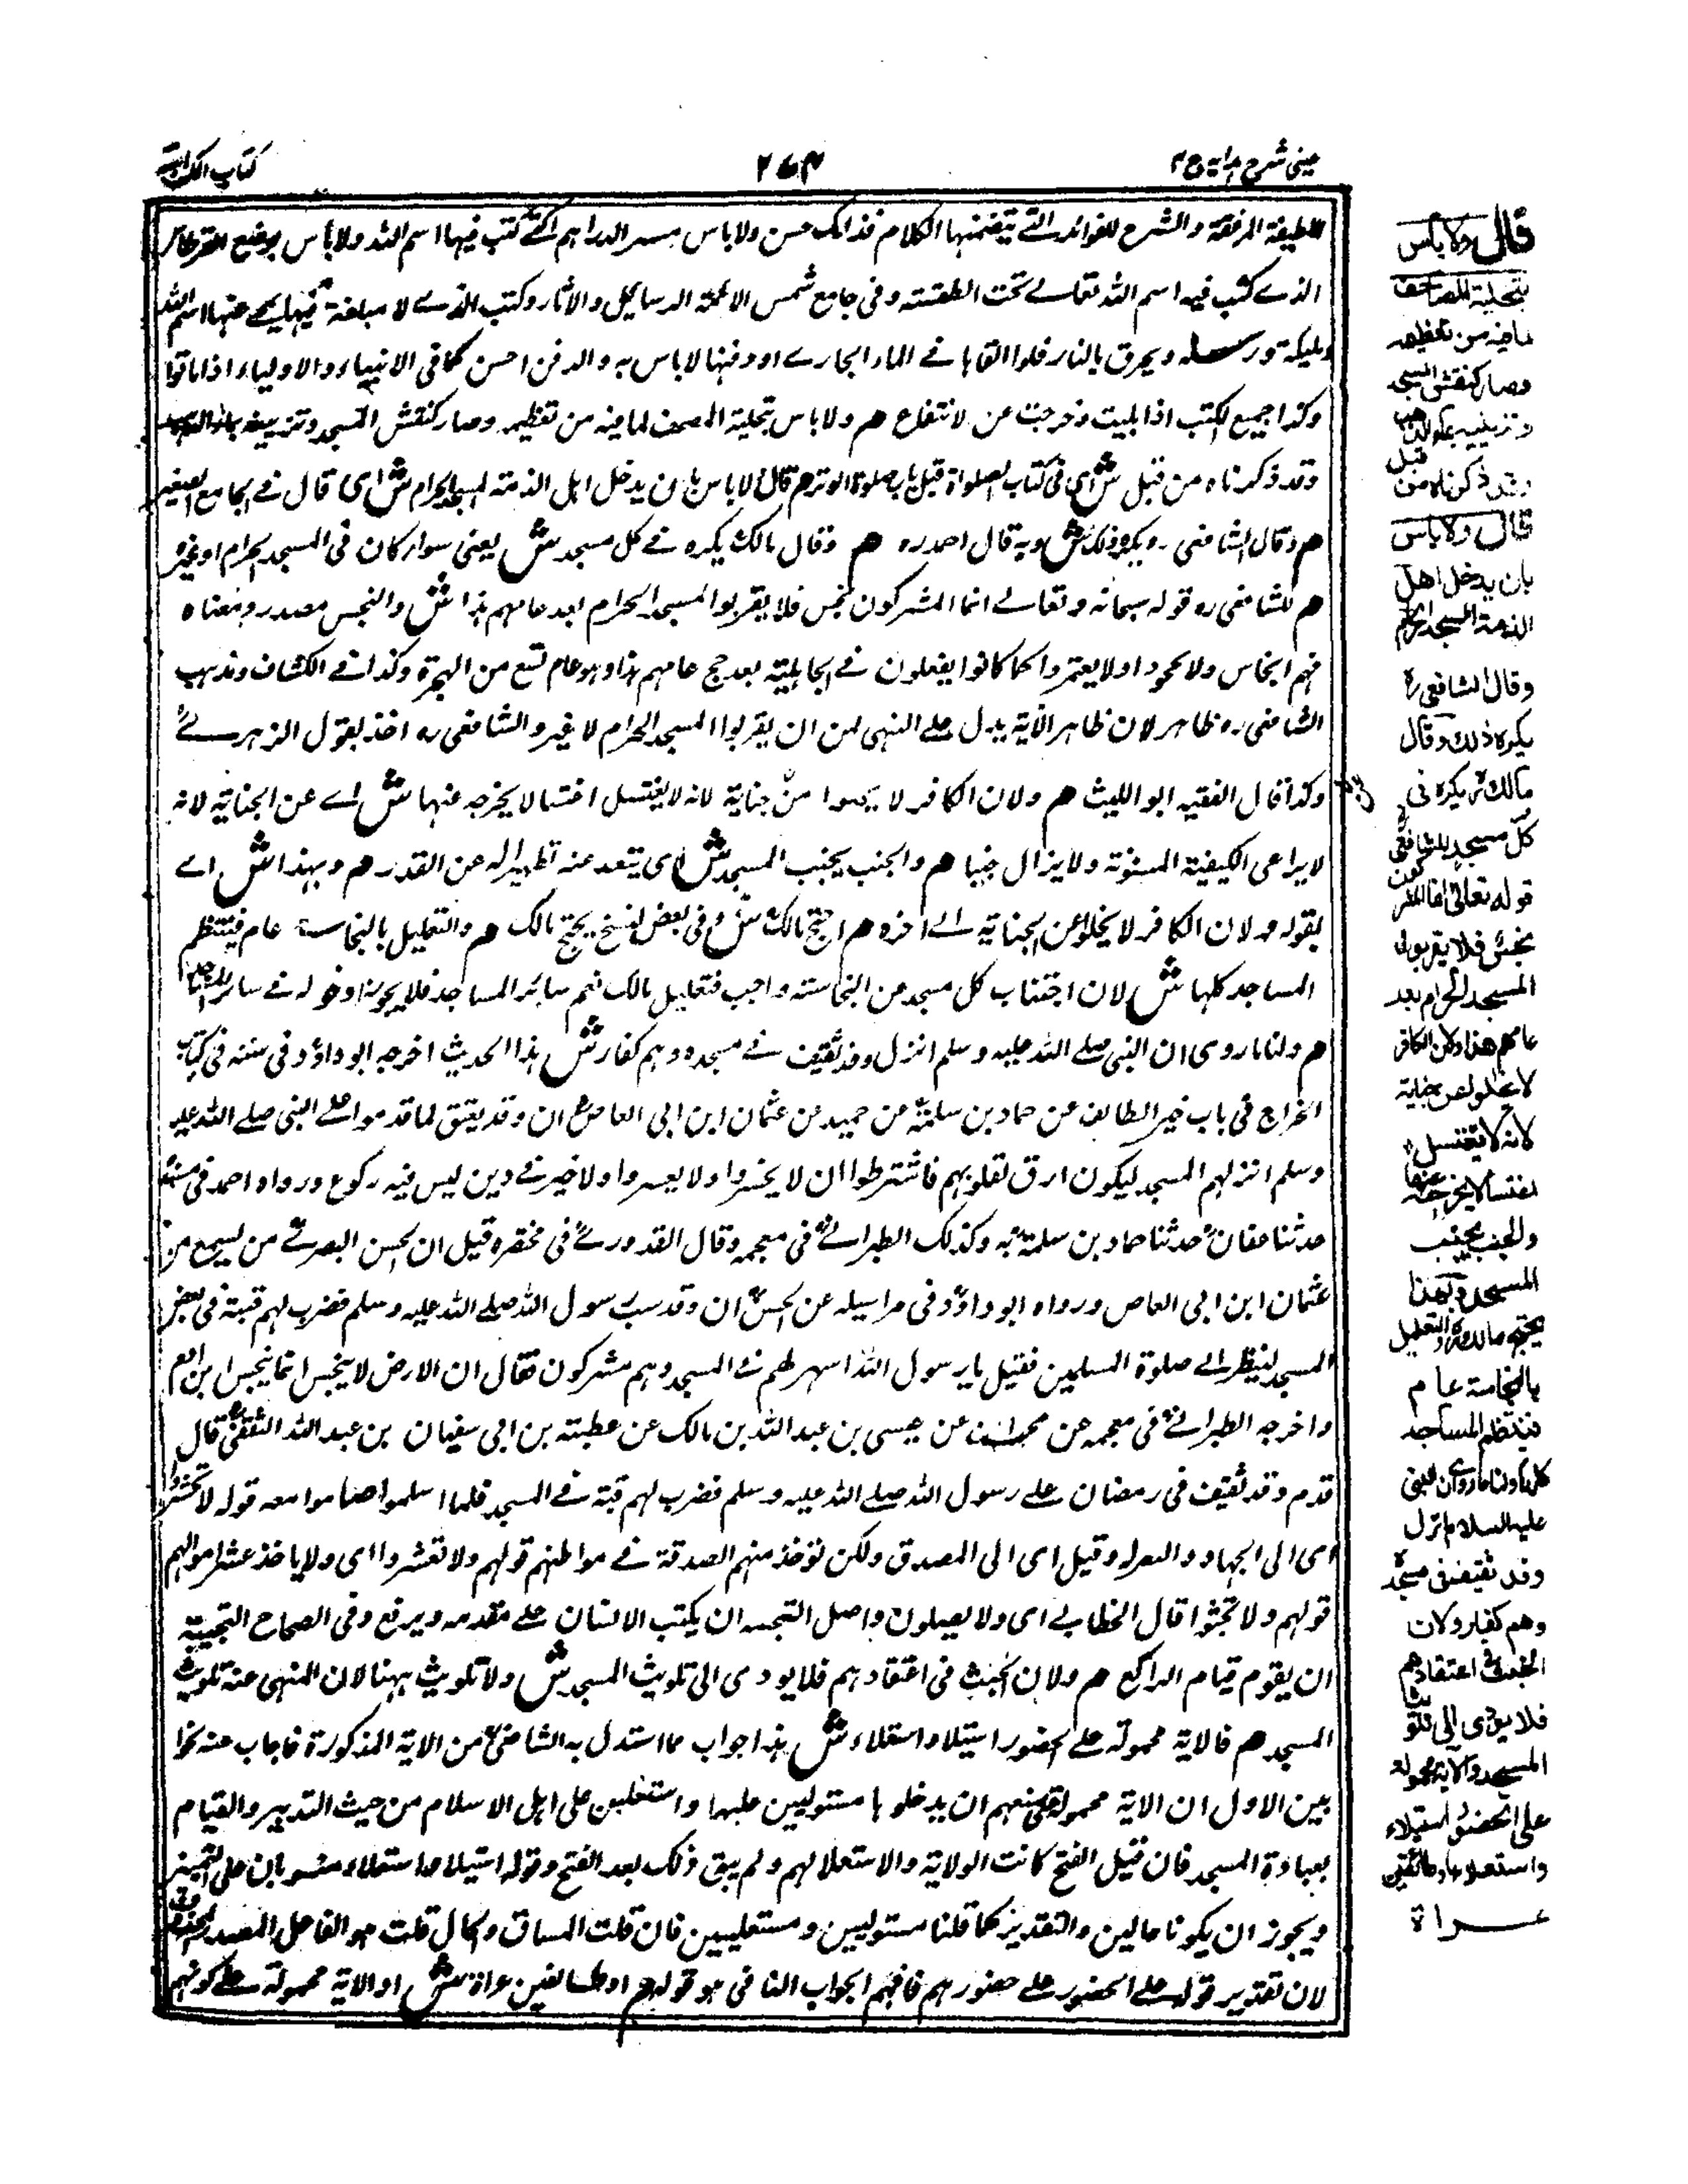 عینی شرح ہدایہ ج ۴
۲۶۴
کتاب الکراہیۃ
اللطیفۃ المرفقۃ والشرح للفوائد التے یتضمنہا الکلام فذالک حسن ولا باس بمس الدراہم التے کتب فیہا اسم اللہ ولا باس بوضع القرطاس
الذے کتب فیہ اسم اللہ تعالے تحت الطنفسۃ وفی جامع شمس الائمۃ الرسائل والآثار وکتب الذے لا منفعۃ فیہا یمحے عنہا اسم اللہ
وملیکتہ ورسلہ ویحرق بالنار فلو القاہا نے الماء الجارے او دفنہا لا باس بہ والدفن احسن کما فی الانبیاء والاولیاء اذا ماتوا
وکذا جمیع الکتب اذا بلیت وخرجت عن لانتفاع ھم ولا باس بتحلیۃ المصحف لما فیہ من تعظیمہ وصار کنقش المسجد وتزیینہ بماء الذہب
وقد ذکرناہ من قبل ش ای فی کتاب الصلواۃ قبل باب صلوۃ الوتر ھم قال لا باس بان یدخل اہل الذمۃ المسجد الحرام ش ای قال نے الجامع الصغیر
ھم وقال الشافعی رہ یکرہ ذلک ش وبہ قال احمد رہ ھم وقال مالک یکرہ نے کل مسجد ش یعنی سواء کان فی المسجد الحرام او غیرہ
ھم للشافعی رہ قولہ سبحانہ وتعالے انما المشرکون نجس فلا یقربوا المسجد الحرام بعد عامہم ہذا ش والنجس مصدر ومعناہ
فہم انجاس ولا یحجوا ولا یعتمروا کما کانوا یفعلون نے الجاہلیۃ بعد حج عامہم ہذا وہو عام تسع من الہجرۃ وکذا نے الکشاف ومذہب
الشافعی رہ ظاہر لان ظاہر الآیۃ یدل علے النہی لمن ان یقربوا المسجد الحرام لا غیر والشافعی رہ اخذ بقول الزہرے
وکذا قال الفقیہ ابو اللیث ھم ولان الکافر لا یخلوا من جنایۃ لانہ لا یغتسل اغتسالا یخرجہ عنہا ش اے عن الجنایۃ لانہ
لا یراعی الکیفیۃ المسنونۃ ولا یزال جنبا ھم والجنب یجنب المسجد ش ای یتبعد عنہ تطہیرا لہ عن القذر ھم وبہذا ش اے
بقولہ ولان الکافر لا یخلو عن الجنایۃ الے آخرہ ھم احتج مالک ش وفی بعض النسخ یحتج مالک ھم والتعلیل بالنجاسۃ عام فینتظم
المساجد کلہا ش لان اجتناب کل مسجد من النجاستہ واجب فتعلیل مالک نعم سائر المساجد فلا یجوز دخولہ نے سائر المساجد
ھم ولنا ما روی ان النبی صلے اللہ علیہ وسلم انزل وفد ثقیف نے مسجدہ وہم کفار ش ہذا الحدیث اخرجہ ابو داؤد فی سننہ فی کتاب
الخراج فی باب خبر الطائف عن حماد بن سلمۃ عن حمید عن عثمان ابن ابی العاص ان وفد ثقیف لما قدموا علے النبی صلے اللہ علیہ
وسلم انزلہم المسجد لیکون ارق لقلوبہم فاشترطوا ان لا یحشروا ولا یعشروا ولا خیر نے دین لیس فیہ رکوع ورواہ احمد فی مسندہ
حدثنا عفان حدثنا حماد بن سلمۃ بہ وکذلک الطبرانے فی معجمہ وقال القدورے فی مختصرہ قیل ان الحسن البصرے من یسمع من
عثمان ابن ابی العاص ورواہ ابو داؤد فی مراسیلہ عن الحسن ان وفد سب رسول اللہ صلے اللہ علیہ وسلم فضرب لہم قبتہ فی بعض
المسجد لینظر الے صلوۃ المسلمین فقیل یا رسول اللہ نے المسجد وہم مشرکون فقال ان الارض لا ینجس انما ینجس ابن ادم
واخرجہ الطبرانے فی معجمہ عن عن عیسی بن عبد اللہ بن مالک عن عطیتہ بن ابی سفیان بن عبد اللہ الثقفی قال
قدم وفد ثقیف فی رمضان علے رسول اللہ صلے اللہ علیہ وسلم فضرب لہم قبۃ نے المسجد فلما اسلموا صاموا معہ قولہ لا تحشروا
ای الی الجہاد وقیل ای الی المصدق ولکن تؤخذ منہم الصدقۃ نے مواطنہم قولہم ولا تعشروا ای ولا یاخذ عشر اموالہم
قولہم ولا تجثوا قال الخطابے ای ولا یصلون واصل التجبیہ ان یکتب الانسان علے مقدمہ ویرفع وفی الصحاح التجبیۃ
ان یقوم قیام الراکع ھم ولان الخبث فی اعتقادہم فلا یودی الی تلویث المسجد ش ولا تلویث ہہنا لان المنہی عنہ تلویث
المسجد ھم فالایۃ محمولۃ علے الحضور استیلاء واستعلاء ش ہذا جواب عما استدل بہ الشافعی من الایۃ المذکورۃ فاجاب عنہ
بین الاول ان الایۃ محمولۃ علی منعہم ان یدخلوہا مستولیین علیہا واستعلین علی اہل الاسلام من حیث التدبیر والقیام
بعبادۃ المسجد فان قبل الفتح کانت الولایۃ والاستعلاء لہم ولم یبق ذلک بعد الفتح وقولہ استیلاء واستعلاء منسوبان علی التمییز
ویجوز ان یکونا حالین والتقدیر کما قلنا مستولیین ومستعلیین فان قلت المساق وکال قلت ہو الفاعل المصدر
لان تقدیر قولہ علے الحضور علے حضورہم فافہم الجواب الثانی ہو قولہ ھم او طائفین عراۃ ش او الایۃ محمولۃ علے کونہم
قال ولا باس
بتحلیۃ المصاحف
لما فیہ من تعظیمہ
وصار کنقش المسجد
وتزیینہ بماء الذہب
وقد ذکرناہ من قبل
قال ولا باس
بان یدخل اهل
الذمۃ المسجد الحرام
وقال الشافعی رہ
یکرہ ذلک وقال
مالک رہ یکرہ فی
کل مسجد للشافعی
قولہ تعالی انما المشرکون
نجس فلا یقربوا
المسجد الحرام بعد
عامهم هذا ولان الکافر
لا یخلو عن جنابة
لانہ لا یغتسل
اغتسالا یخرجہ عنها
والجنب یجنب
المسجد وبهذا
یحتج مالک رہ والتعلیل
بالنجاسۃ عام
فینتظم المساجد
کلها ولنا ما روی ان النبی
علیہ السلام انزل
وفد ثقیف فی مسجدہ
وهم کفار ولان
الخبث فی اعتقادهم
فلا یؤدی الی تلویث
المسجد والآیۃ محمولۃ
علی الحضور استیلاء
واستعلاء او طائفین
عراۃ